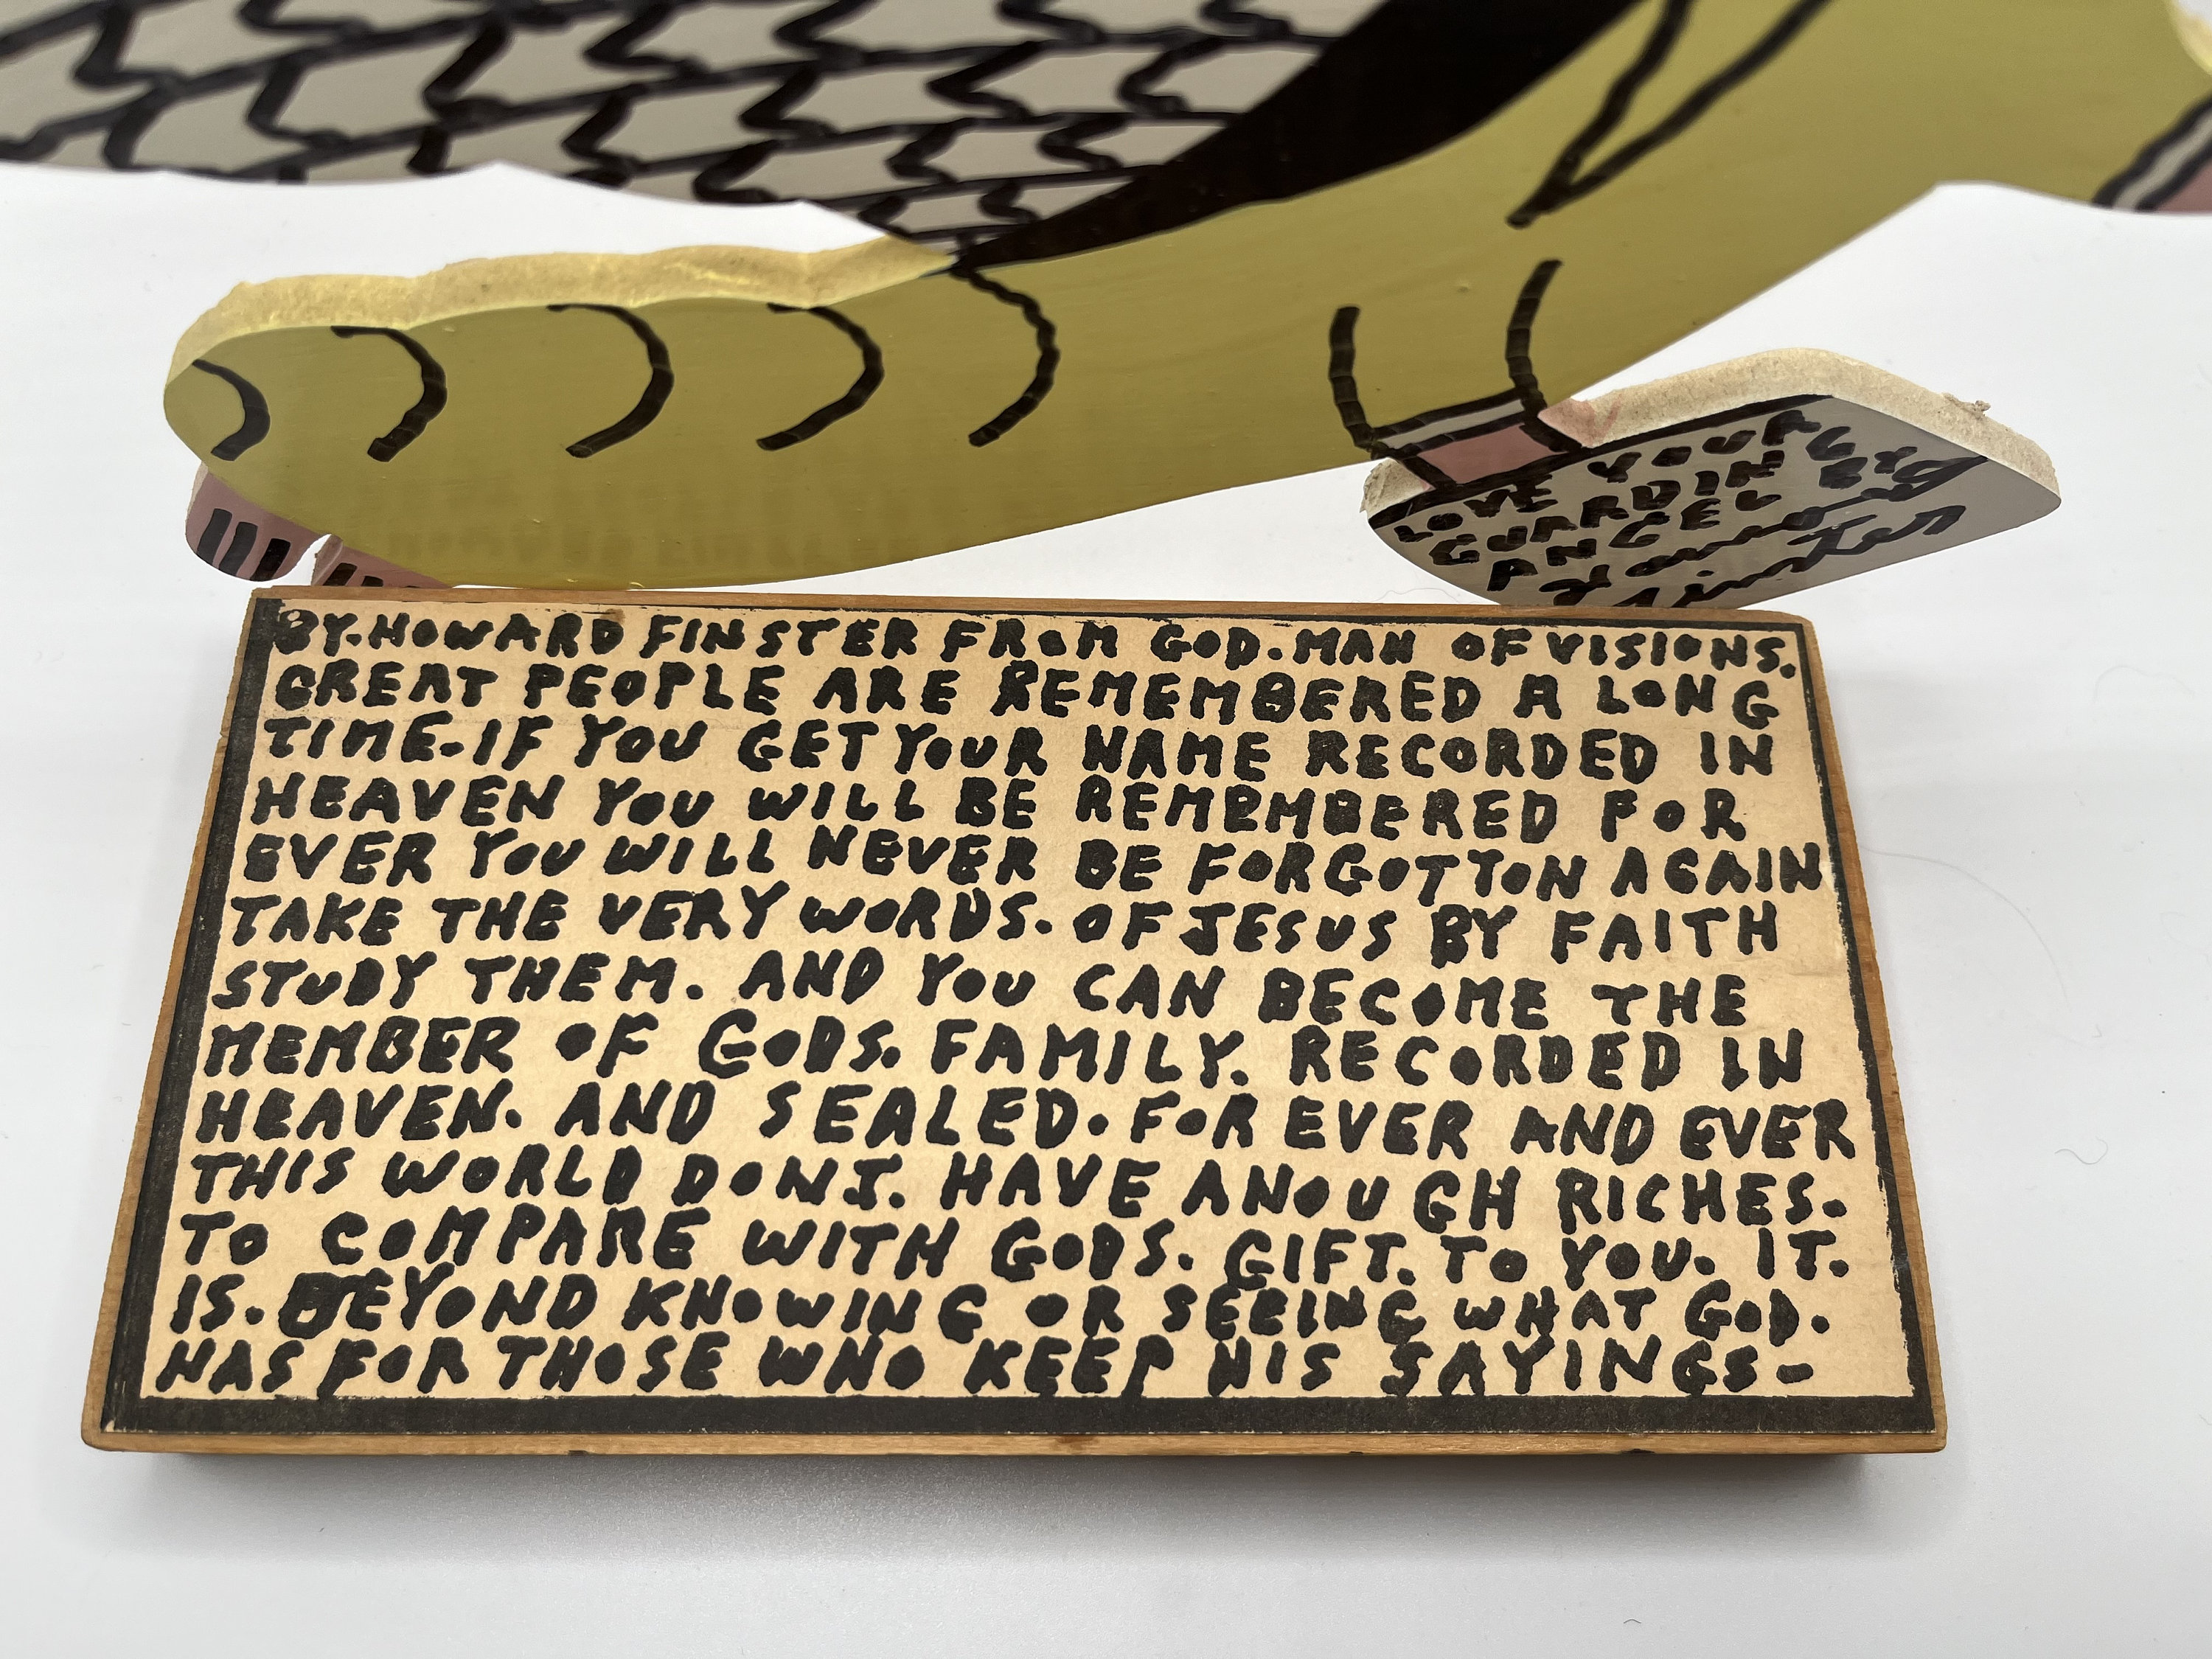 LOVE YOUR
GUARDIN
ANGEL BY
Howard
Finster
BY.HOWARD FINSTER FROM GOD.MAN OF VISIONS.
GREAT PEOPLE ARE REMEMBERED A LONG
TIME-IF YOU GET YOUR NAME RECORDED IN
HEAVEN YOU WILL BE REMEMBERED FOR
EVER YOU WILL NEVER BE FORGOTTON AGAIN
TAKE THE VERY WORDS. OF JESUS BY FAITH
STUDY THEM. AND YOU CAN BECOME THE
MEMBER OF GODS. FAMILY. RECORDED IN
HEAVEN. AND SEALED. FOR EVER AND EVER
THIS WORLD DONT. HAVE ANOUGH RICHES.
TO COMPARE WITH GODS. GIFT. TO YOU. IT.
IS. BEYOND KNOWING OR SEEING WHAT GOD.
HAS FOR THOSE WHO KEEP HIS SAYINGS-